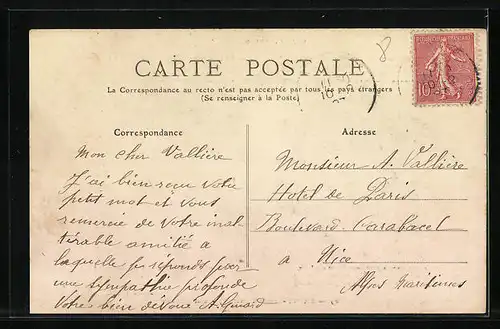 8
CARTE POSTALE
La Correspondance au recto n'est pas acceptée par tous les pays étrangers
(Se renseigner à la Poste)
10
Correspondance
Mon cher Vallière
J'ai bien reçu votre
petit mot et vous
remercie de votre inal-
térable amitié a
laquelle je réponds par
une sympathie profonde
Votre bien dévoué
Adresse
Monsieur A. Vallière
Hotel de Paris
Boulevard Carabacel
a Nice
Alpes Maritimes